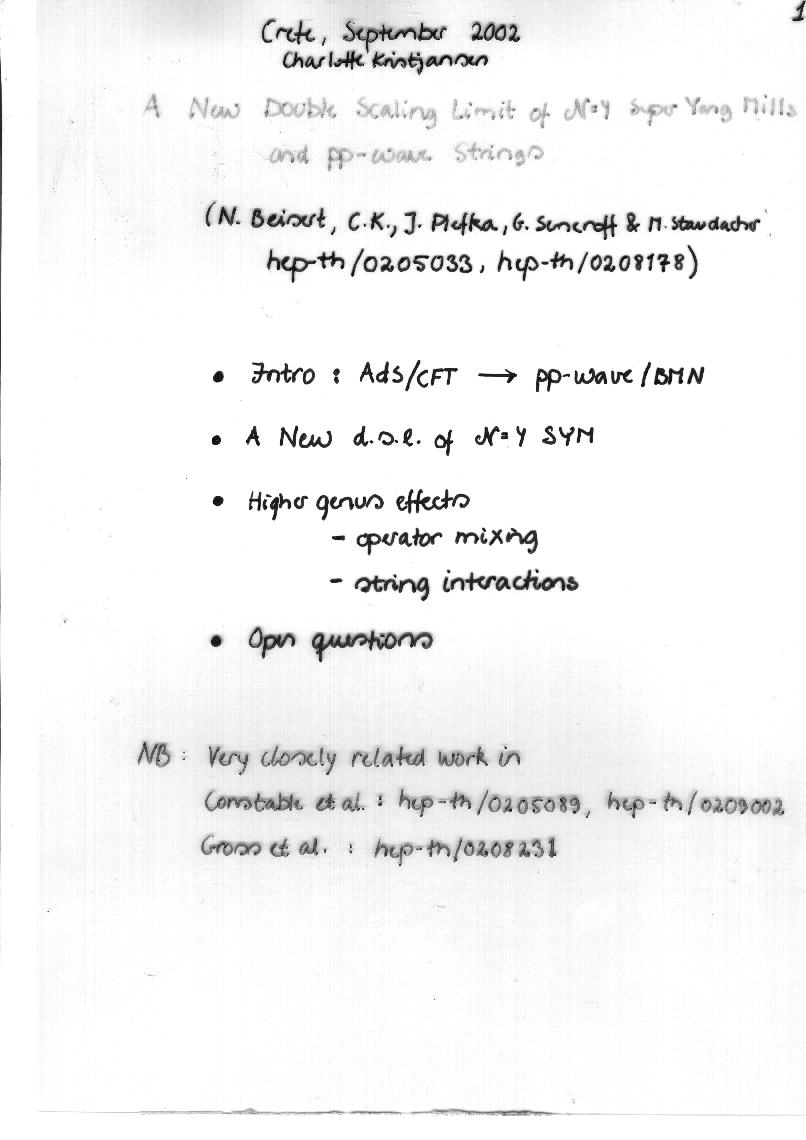 1
Crete, September 2002
Charlotte Kristjansen
A New Double Scaling Limit of N=4 Super Yang Mills
and pp-wave Strings
(N. Beisert, C.K., J. Plefka, G. Semenoff & M. Staudacher
hep-th/0205033, hep-th/0208178)
• Intro : AdS/CFT → pp-wave/BMN
• A New d.s.l. of N=4 SYM
• Higher genus effects
- operator mixing
- string interactions
• Open questions
NB : Very closely related work in
Constable et al. : hep-th/0205089, hep-th/0209002
Gross et al. : hep-th/0208231